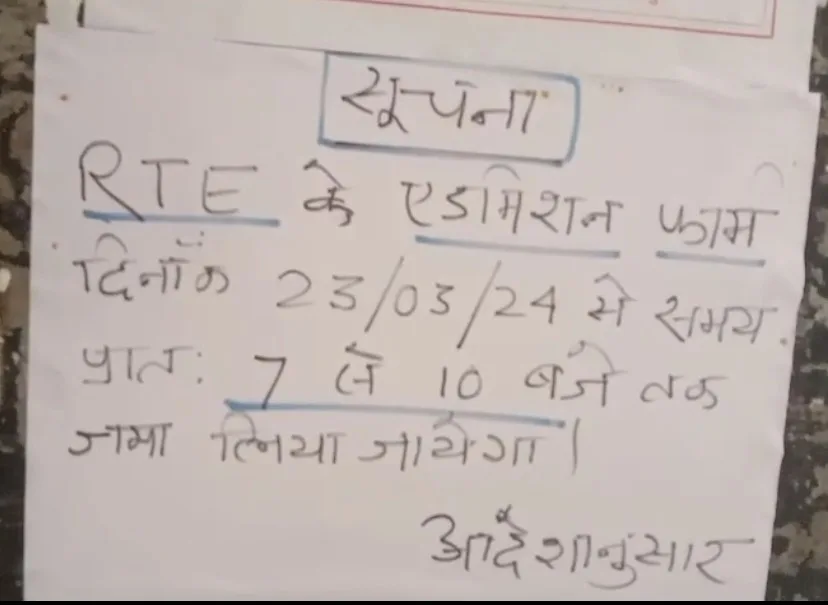 सूचना
RTE के एडमिशन फार्म
दिनाँक 23/03/24 से समय.
प्रात: 7 से 10 बजे तक
जमा लिया जायेगा।
आदेशानुसार